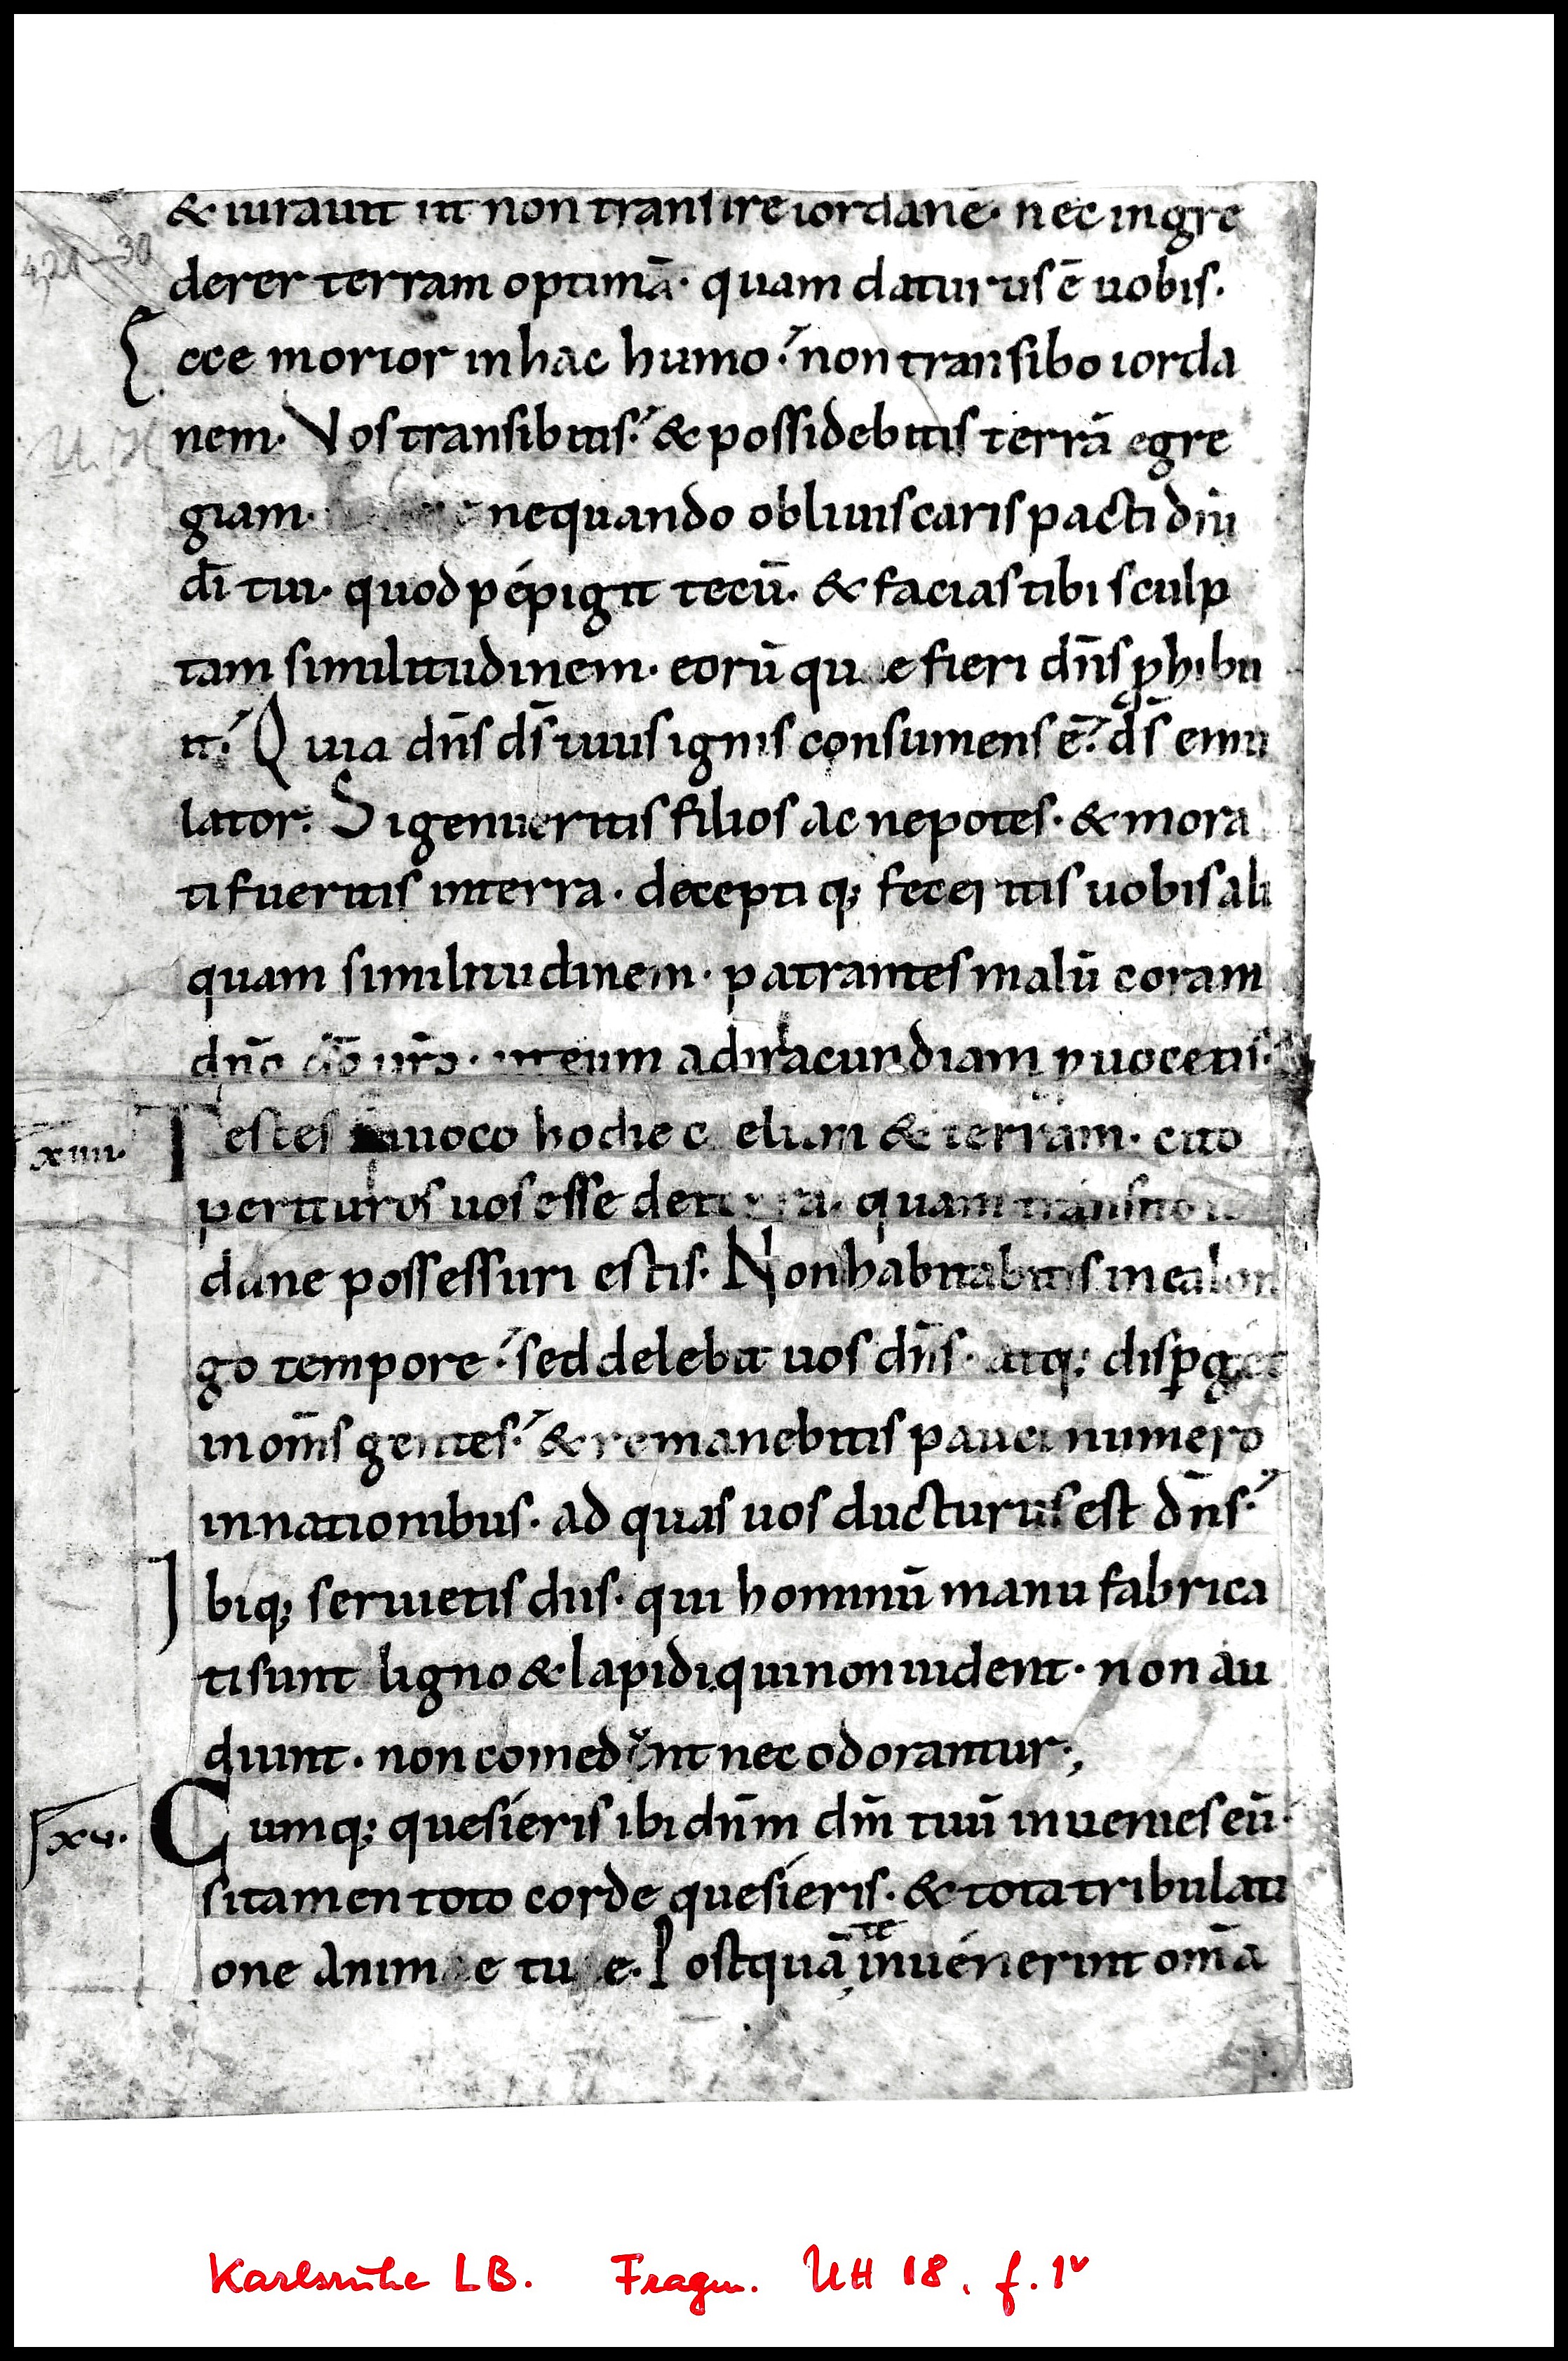 & iurauit ut non transire iordanē· nec ingre
4,21–30
derer terram optimā· quam daturus ē uobis·
Ecce morior in hac humo· non transibo iorda
nem· Vos transibitis· & possidebitis terrā egre
giam· nequando obliuiscaris pacti dn̄i
dī tui· quod pépigit tecū· & facias tibi sculp
tam similitudinem· eorū quae fieri dn̄s ꝓhibu
it· Quia dn̄s ds̄ tuus ignis consumens ē· ds̄ emu
lator· Si genueritis filios ac nepotes· & mora
ti fueritis in terra· decepti q; feceritis uobis ali
quam similitudinem· patrantes malū coram
dn̄o dō ur̄o· ut eum ad iracundiam ꝓuocetis·
xiiii· Testes inuoco hodie caelum & terram· cito
perituros uos esse de terra· quam transito
dane possessuri estis· Non habitabitis in ea lon
go tempore· sed delebit uos dn̄s· atq; disꝑget
in om̄s gentes· & remanebitis pauci numero
in nationibus· ad quas uos ducturus est dn̄s·
Ibiq; seruietis diis· qui hominū manu fabrica
ti sunt ligno & lapidi qui non uident· non au
diunt· non comedunt nec odorantur·,
xv· Cumq; quesieris ibi dn̄m dm̄ tuū inuenies eū·
si tamen toto corde quesieris· & tota tribulati
one animae tuae· Postquā te inuénerint om̄a
Karlsruhe LB. Fragm. UH 18, f. 1v